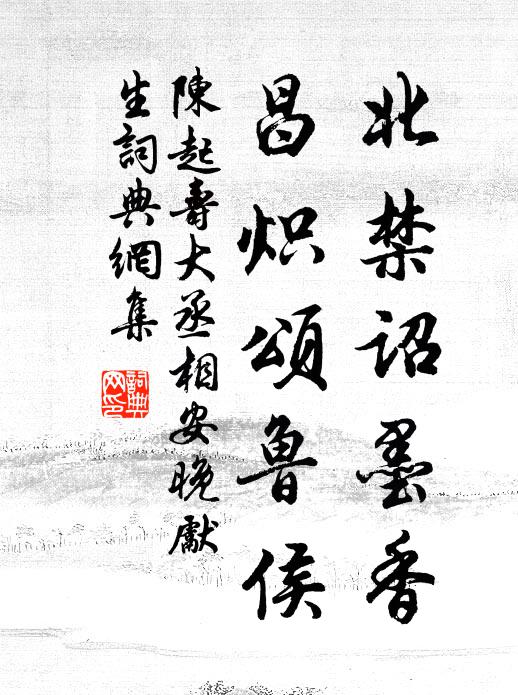 北禁詔墨香
昌炽頌魯侯
陳起壽大丞相安晚獻
生詞典網集
詞典网印